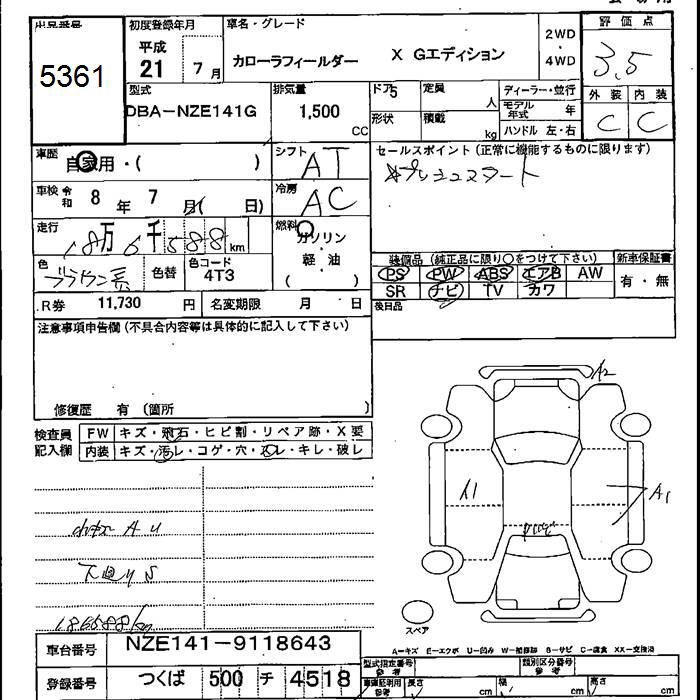 出品番号
5361
初度登録年月
平成
21 7月
車名・グレード
カローラフィールダー X Gエディション
2WD
・
4WD
評価点
3,5
外装 内装
C C
型式
DBA-NZE141G
排気量
1,500
CC
ドア5
形状
定員
人
積載
kg
ディーラー・並行
モデル年式 年
ハンドル 左・右
車歴
自家用・( )
シフト
AT
車検 令和 8年 7月 (日)
冷房
AC
走行
18万6千588km
燃料
ガソリン
軽油
( )
色
ブラウン系
色替
色コード
4T3
R券 11,730 円
名変期限 月 日
セールスポイント(正常に機能するものに限ります)
プッシュスタート
装備品(純正品に限り○をつけて下さい)
新車保証書
PS PW ABS エアB AW
有・無
SR ナビ TV カワ
後日品
注意事項申告欄(不具合内容等は具体的に記入して下さい)
修復歴 有(箇所 )
検査員
記入欄
FW キズ・飛石・ヒビ割・リペア跡・X要
内装 キズ・汚レ・コゲ・穴・スレ・キレ・破レ
小キズ A U
下廻りS
186588km
A2
A1
A1
スペア
A-キズ E-エクボ U-凹み W-補修跡 S-サビ C-腐食 XX-交換済
車台番号 NZE141-9118643
登録番号 つくば 500 チ 4518
型式指定番号
参考
類別区分番号
参考
車庫証明用
参考
長さ cm
幅 cm
高さ cm